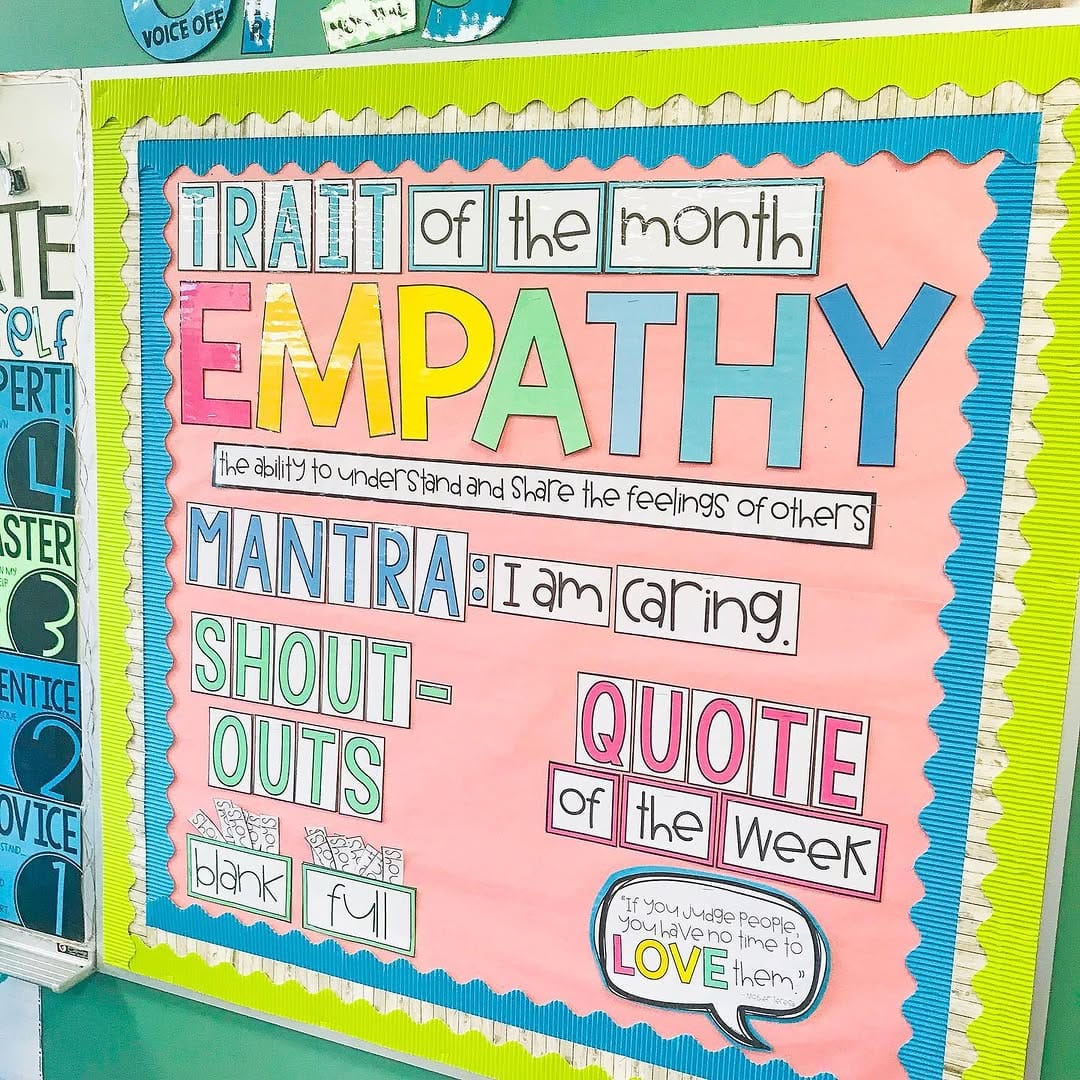 VOICE OFF
TRAIT of the month
EMPATHY
the ability to understand and share the feelings of others
MANTRA: I am caring.
SHOUT-
OUTS
blank
full
QUOTE
of the week
"If you judge people,
you have no time to
LOVE them."
- Mother Teresa
ELF
PERT!
4
ASTER
3
ENTICE
2
OVICE
1